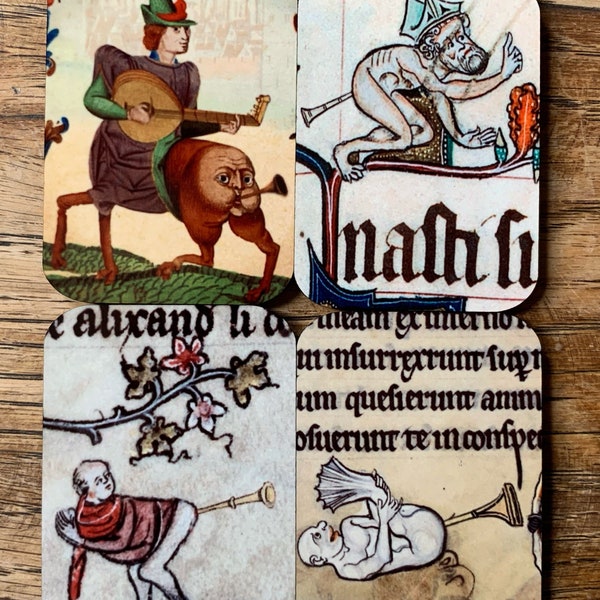 nasti si
e alixand li co
meam ex inferno
ui insurrexrunt sup
um quesierunt anim
osuerunt te in conspe